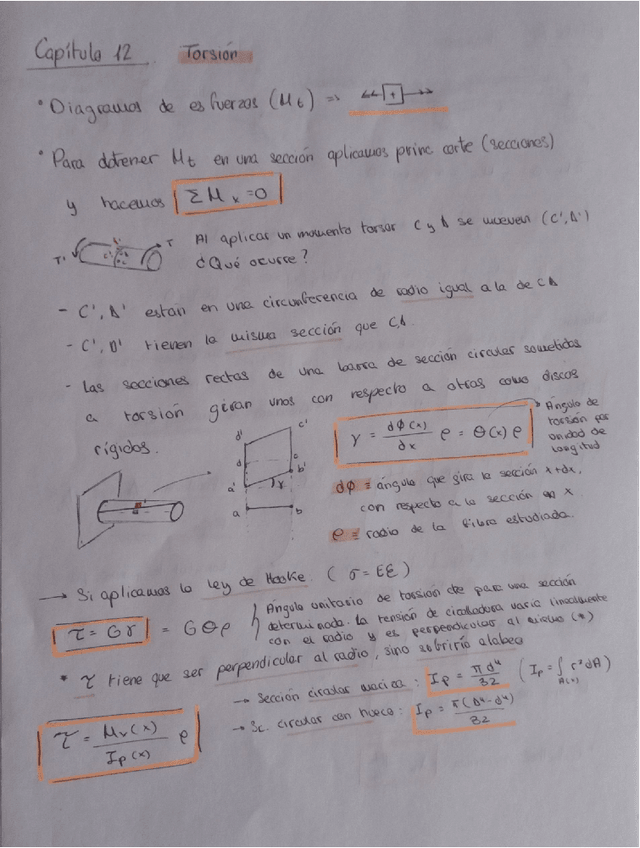 Capítulo 12 Torsión
• Diagramas de esfuerzos (Mt) => +
• Para obtener Mt en una sección aplicamos princ corte (secciones)
y hacemos ΣMx=0
T' T Al aplicar un momento torsor C y D se mueven (C', D')
¿Qué ocurre?
- C', D' están en una circunferencia de radio igual a la de CD
- C', D' tienen la misma sección que C,D.
- Las secciones rectas de una barra de sección circular sometidas
a torsión giran unas con respecto a otras como discos
rígidos.
γ = dφ(x)/dx ρ = θ(x) ρ
Ángulo de
torsión por
unidad de
longitud
d' c' d c a' b' γ a b
dφ ≡ ángulo que gira la sección x+dx,
con respecto a la sección x
ρ ≡ radio de la fibra estudiada.
→ Si aplicamos la Ley de Hooke. (σ = Eε)
τ = Gγ = Gθρ
Ángulo unitario de torsión cte para una sección
determinada. La tensión de cizalladura varía linealmente
con el radio y es perpendicular al mismo (*)
* τ tiene que ser perpendicular al radio, sino sufriría alabeo
→ Sección circular maciza: Ip = πd⁴/32 (Ip = ∫A(x) r²dA)
→ Sc. circular con hueco: Ip = π(D⁴-d⁴)/32
τ = Mx(x)/Ip(x) ρ